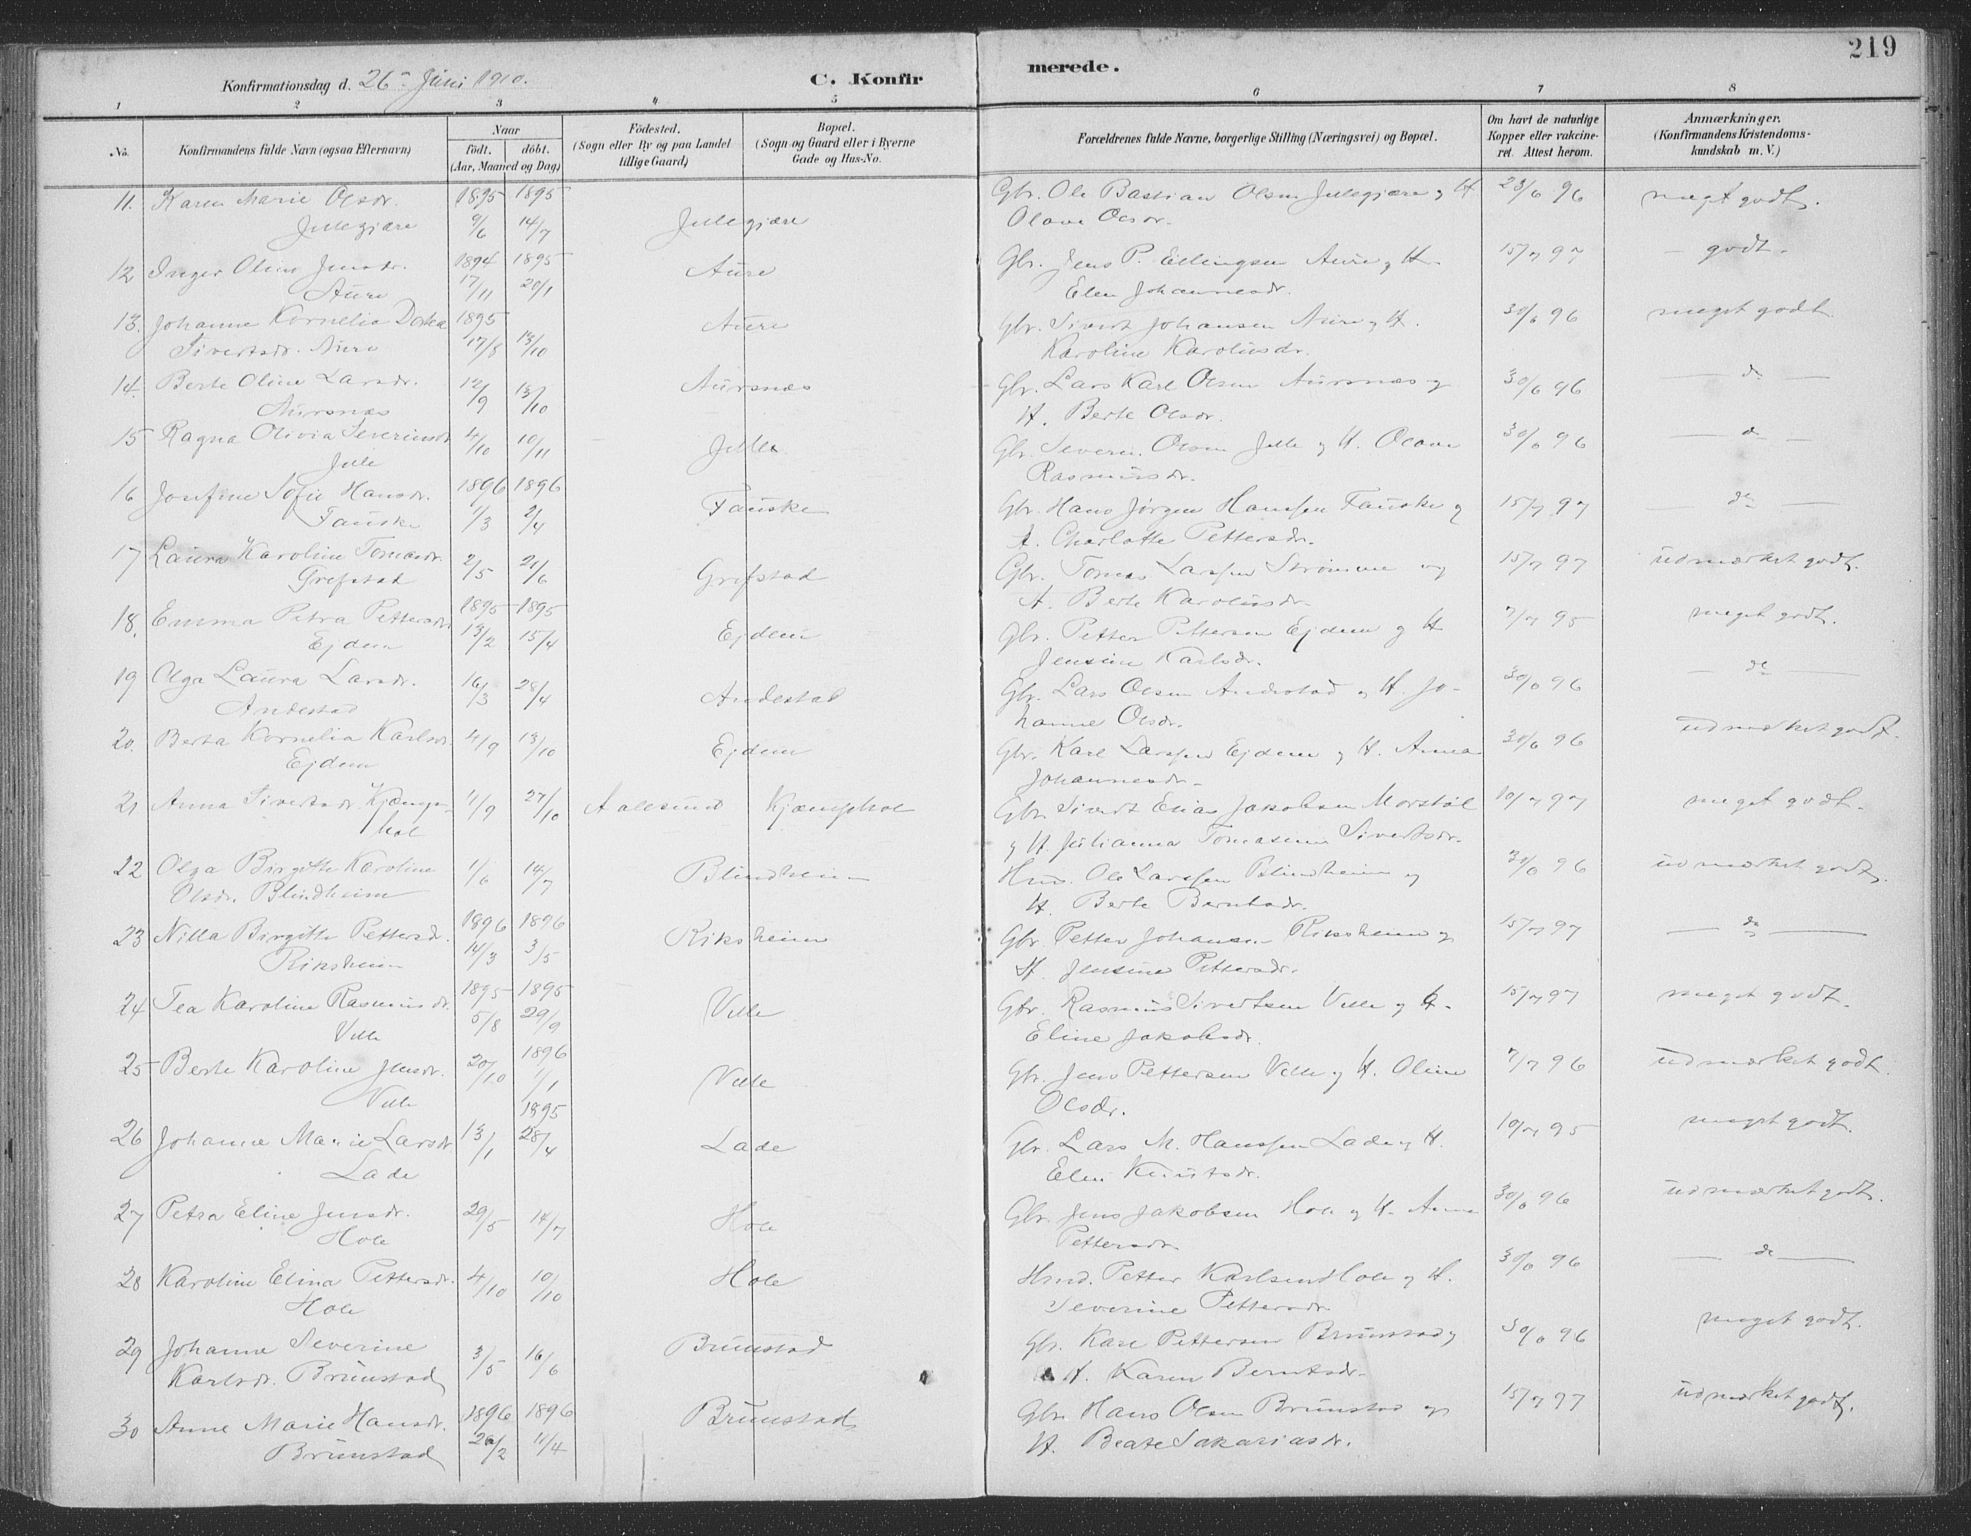 219
Konfirmationsdag d. 26de Juni 1910.
C. Konfirmerede.
1 2 3 4 5 6 7 8
No. Konfirmandens fulde Navn (ogsaa Efternavn) Naar født. døbt. (Aar, Maaned og Dag) Fødested. (Sogn eller By og paa Landet tillige Gaard) Bopæl. (Sogn og Gaard eller i Byerne Gade og Hus-No. Forældrenes fulde Navne, borgerlige Stilling (Næringsvei) og Bopæl. Om havt de naturlige Kopper eller vakcineret. Attest herom. Anmærkninger. (Konfirmandens Kristendomskundskab m. V.)
11. Karen Marie Olsdr. 1895 1895 Gbr. Ole Bastian Olsen Jullegjære og H. 23/6 96 meget godt.
Jullegjære 9/6 14/7 Jullegjære Olave Olsdr.
12 Inger Oline Jensdr. 1894 1895 Aure Gbr. Jens P. Ellingsen Aure og H. 15/7 97 godt.
Aure 17/11 20/1 Elen Johannesdr.
13. Johanne Kornelia Dortea 1895 Aure Gbr. Sivert Johansen Aure og H. 30/6 96 meget godt.
Sivertsdr. Aure 17/8 13/10 Karoline Karolusdr.
14. Berte Oline Larsdr. 12/9 13/10 Aursnæs Gbr. Lars Karl Olsen Aursnæs og 30/6 96 — do —
Aursnæs H. Berte Olsdr.
15 Ragna Olivia Severinsdr. 4/10 10/11 Jelle Gbr. Severin Olsen Jelle og H. Olave 30/6 96 — do —
Jelle Rasmusdr.
16 Josefine Sofie Hansdr. 1896 1896 Fauske Gbr. Hans Jørgen Hanssen Fauske og 15/7 97 — do —
Fauske 1/3 2/4 H. Charlotte Pettersdr.
17 Laura Karoline Tomasdr. 2/5 21/6 Grefstad Gbr. Tomas Larssen Strømme og 15/7 97 udmærket godt.
Grefstad H. Berte Karolusdr.
18. Emma Petra Pettersdr. 1895 1895 Ejdem Gbr. Petter Pettersen Ejdem og H 7/7 95 meget godt.
Ejdem 13/2 15/4 Jensine Karlsdr.
19 Olga Laura Larsdr. 16/3 28/4 Andestad Gbr. Lars Olsen Andestad og H. Jo- 30/6 96 — do —
Andestad hanne Olsdr.
20. Berta Kornelia Karlsdr. 4/9 13/10 Ejdem Gbr. Karl Larssen Ejdem og H. Anna 30/6 96 udmærket godt.
Ejdem Johannesdr.
21 Anna Sivertsdr. Kjæmpe- 11/9 27/10 Aalesund Kjæmphol Gbr. Sivert Elias Jakobsen Morstøl 10/7 97 meget godt.
hol og H. Julianna Tomasine Sivertsdr.
22 Olga Birgitte Karoline 1/6 14/7 Blindheim Hmd. Ole Larssen Blindheim og 30/6 96 udmærket godt.
Olsdr. Blindheim H. Berte Berntsdr.
23 Nilla Birgitte Pettersdr. 1896 1896 Riksheim Gbr. Petter Johansen Riksheim og 15/7 97 — do —
Riksheim 14/3 3/5 H. Jensine Pettersdr.
24 Tea Karoline Rasmusdr. 1895 1895 Velle Gbr. Rasmus Sivertsen Velle og H. 15/7 97 meget godt.
Velle 5/8 29/9 Eline Jakobsdr.
25 Berte Karoline Jensdr. 20/10 1896 1/1 Velle Gbr. Jens Pettersen Velle og H. Oline 7/7 96 udmærket godt.
Velle Olsdr.
26 Johanne Marie Larsdr 13/1 1895 28/4 Lade Gbr. Lars M. Hanssen Lade og H. 10/7 95 meget godt.
Lade Elen Knutsdr.
27 Petra Eline Jensdr. 29/5 14/7 Hole Gbr. Jens Jakobsen Hole og H. Anna 30/6 96 udmærket godt.
Hole Pettersdr.
28 Karoline Elina Pettersdr. 4/10 10/10 Hole Hmd. Petter Karlsen Hole og H. 30/6 96 — do —
Hole Severine Pettersdr.
29 Johanne Severine 3/5 16/6 Brunstad Gbr. Karl Pettersen Brunstad og 30/6 96 meget godt.
Karlsdr. Brunstad H. Karen Berntsdr.
30 Anne Marie Hansdr. 1896 1896 Brunstad Gbr. Hans Olsen Brunstad og 15/7 97 udmærket godt.
Brunstad 26/2 11/4 H. Beate Sakariasdr.